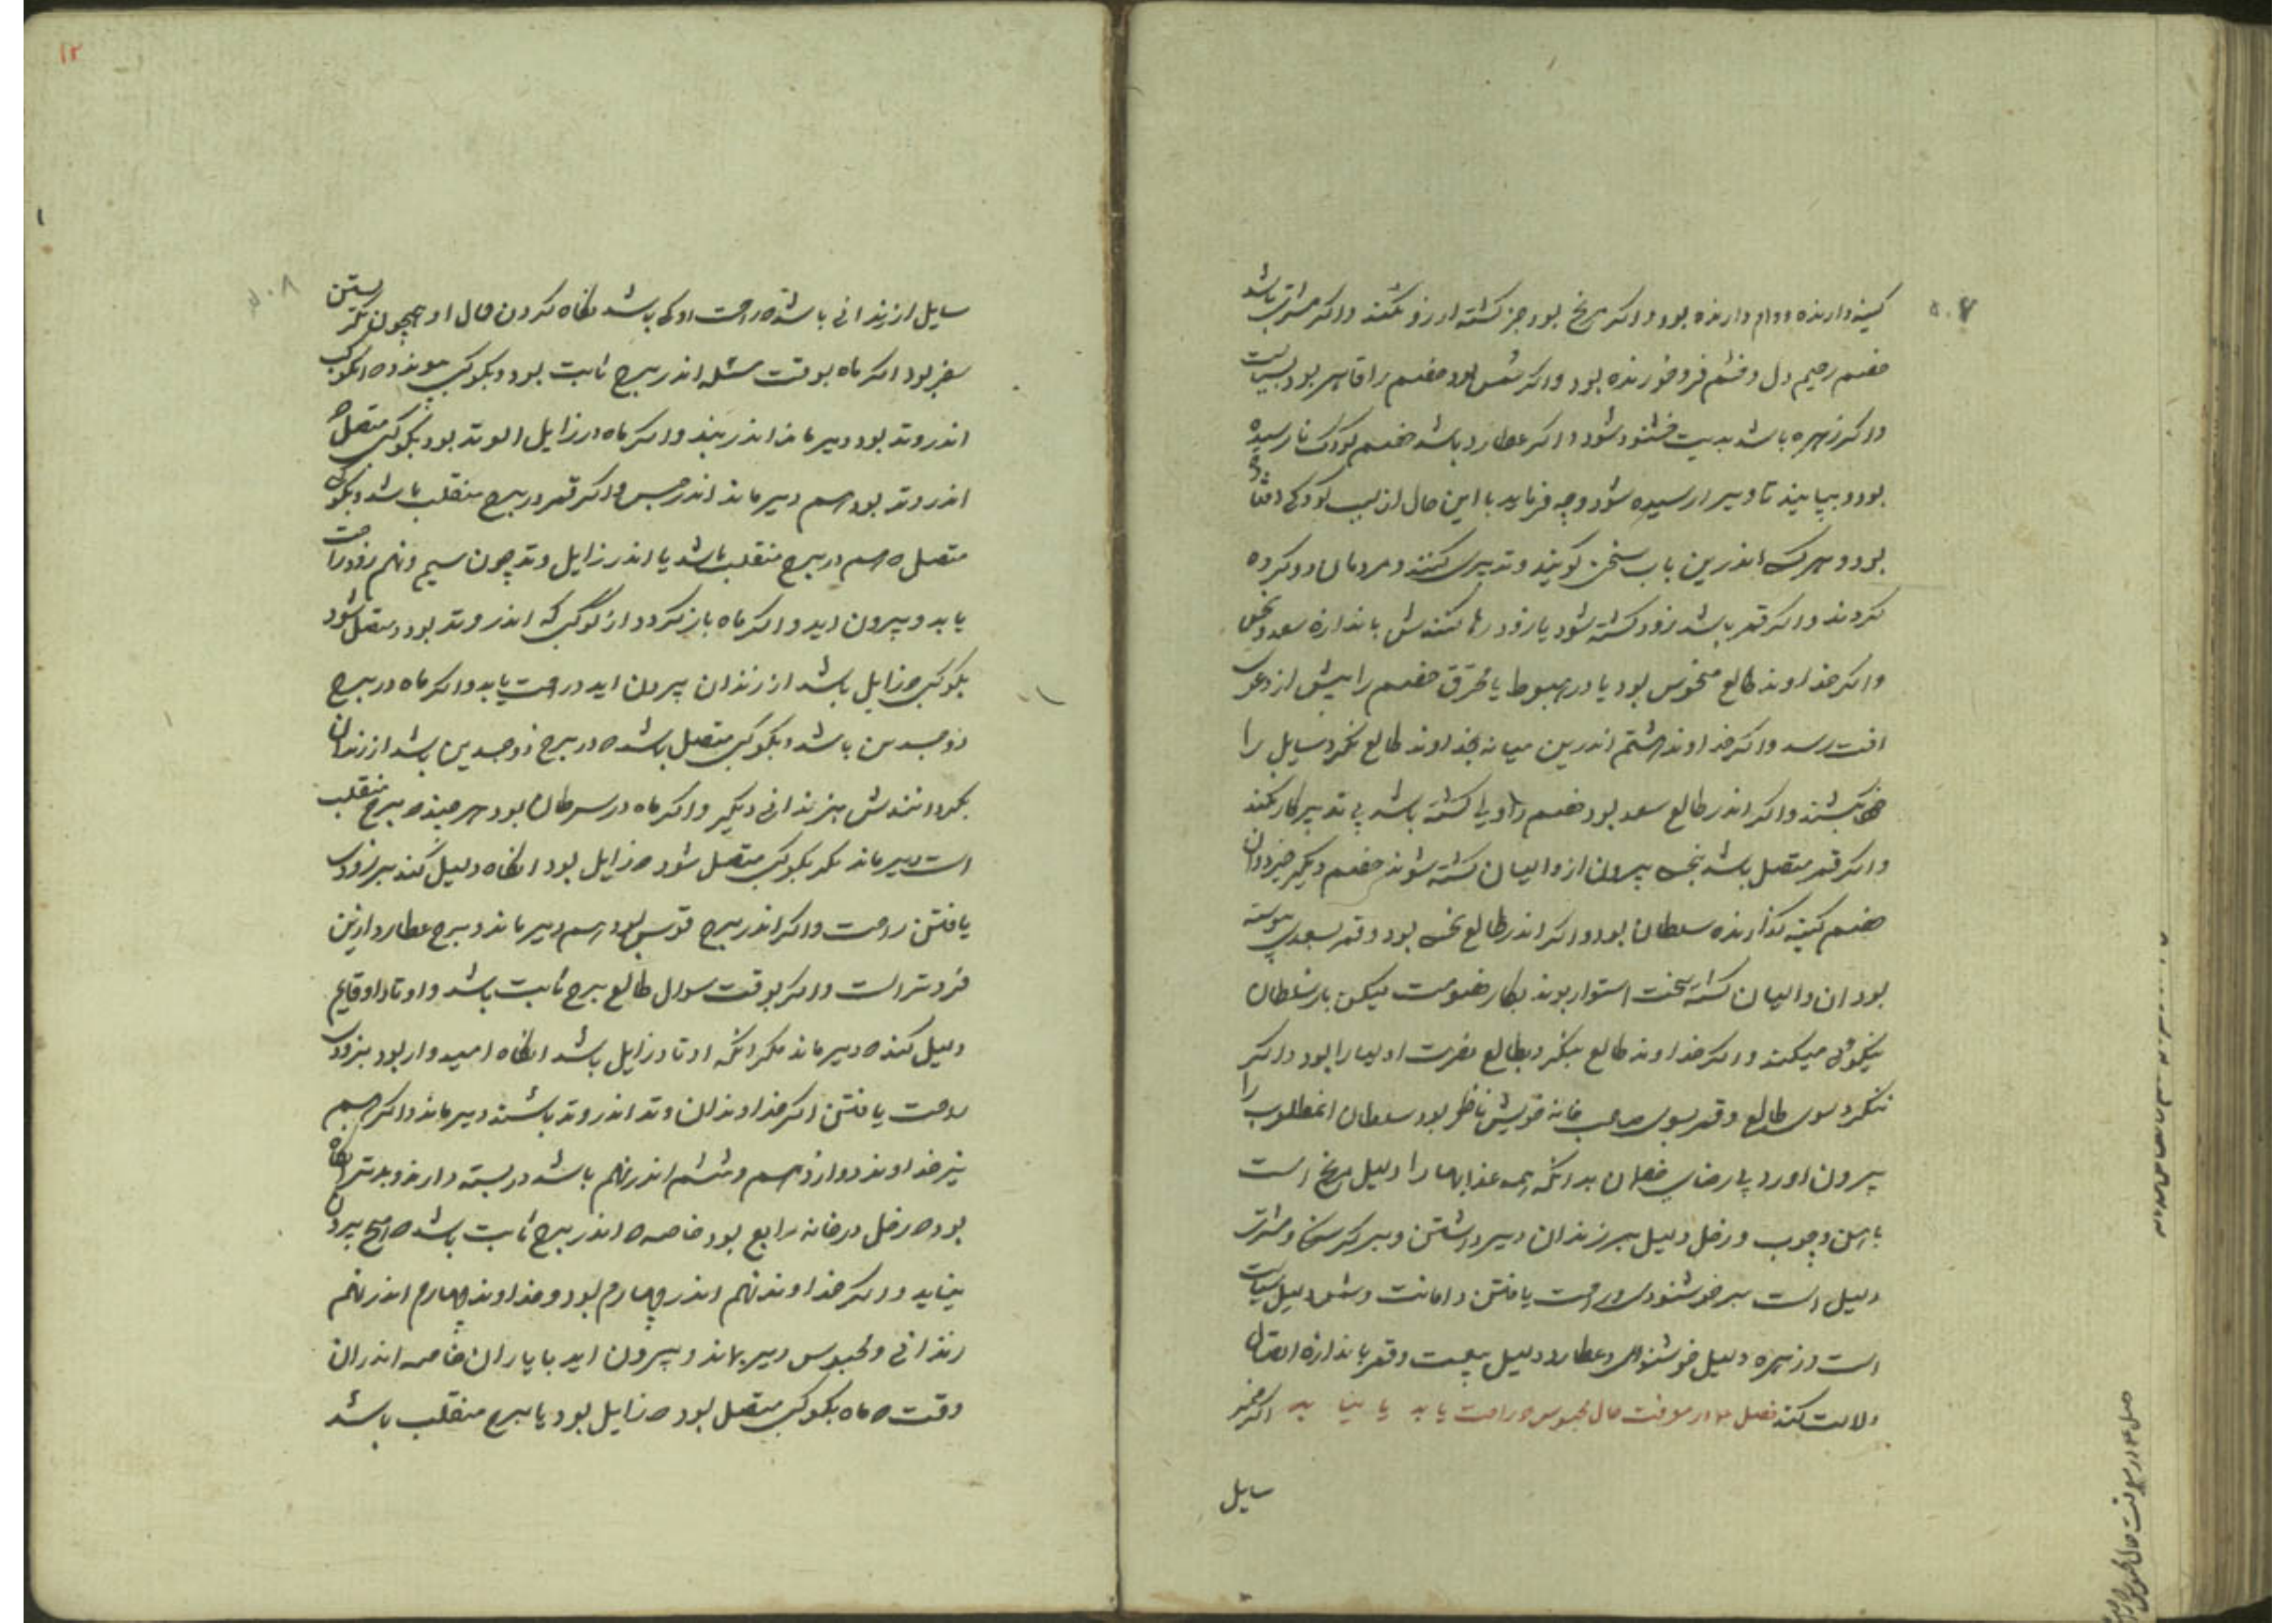 کینه دارنده و وام دارنده بود و اکر مریخ بود جز کشته ارزو نکند و اکر مشتری باشد
خصم رحیم دل و خشم فرو خورنده بود و اکر شمس بود خصم را قاهر بود بسیاست
و اکر زهره باشد بدیت خشنود شود و اکر عطارد باشد خصم کودک نارسیده
بود و بپایند تا دیر ارسیده شود و چه فرماید با این حال از لب کودکی افتاد
بود و هرکه اندرین باب سخن کویند و تدبیری کنند و مردمان دو کروه
کردند و اکر قمر باشد زود کشته شود یا زود رها کنندش باندازه سعد و نحس
و اکر خداوند طالع منحوس بود یا در هبوط یا محترق خصم را پیش از دعوی
افت رسد و اکر خداوند هشتم اندرین میانه بخداوند طالع نکرد سایل را
بکشند و اکر اندر طالع سعد بود خصم را و یا کشته باشد بی تدبیر کار نکند
و اکر قمر متصل باشد بنحس بیرون از والیان کشته شوند خصم دیکر خیزد و ان
خصم کینه کذارنده سلطان بود و اکر اندر طالع نحس بود و قمر بسعدی پیوسته
بود ان والیان کشته سخت استوار بوند بکار خصومت لیکن بار سلطان
نیکوی میکند و اکر خداوند طالع بنکرد بطالع نصرت اولیا را بود و اکر
ننکرد سوی طالع و قمر بسوی صاحب خانه خویش ناظر بود سلطان انمطلوب را
بیرون اورد بی رضای خصمان بدانکه همه عذابها را دلیل مریخ است
باهن و چوب و زحل دلیل بر زندان دیر داشتن و بر کرسنکی و مشتری
دلیل است بر خوشنودی و راحت یافتن و امانت و شمس دلیل سیاست
است و زهره دلیل خوشنودی و عطارد دلیل بیعت و قمر باندازه اتصال
دلالت کند فصل ۱۳ در معرفت حال محبوس که راحت یابد یا نیابد اکر ضمیر
سایل
سایل از زندانی باشد که راحت او کی باشد نکاه کردن حال او همچون نکریستن
سفر بود اکر ماه بوقت مسئله اندر برج ثابت بود و بکوکبی پیوندد که انکوکب
اندر وتد بود دیر ماند اندر بند و اکر ماه در زایل الوتد بود بکوکبی متصل که
اندر وتد بود هم دیر ماند اندر حبس و اکر قمر در برج منقلب باشد و بکوکبی
متصل که هم در برج منقلب باشد یا اندر زایل وتد چون سیم و نهم زود راحت
یابد و بیرون اید و اکر ماه بازکردد از کوکبی که اندر وتد بود و متصل شود
بکوکبی که زایل باشد از زندان بیرون اید و راحت یابد و اکر ماه در برج
ذوجسدین باشد و بکوکبی متصل باشد که در برج ذوجسدین باشد از زندان
بکردانندش بزندانی دیکر و اکر ماه در سرطان بود هرچند که برج منقلب
است دیر ماند مکر بکوکبی متصل شود که زایل بود انکاه دلیل کند بر زودی
یافتن راحت و اکر اندر برج قوس بود هم دیر ماند و برج عطارد ازین
فروتر است و اکر بوقت سوال طالع برج ثابت باشد و اوتاد او قایم
دلیل کند که دیر ماند مکر انکه اوتاد زایل باشد انکاه امیدوار بود بزودی
راحت یافتن اکر خداوندان وتد اندر وتد باشند دیر ماند و اکر هم
نیز خداوند دوازدهم و ششم اندر نهم باشد در بسته دارند و بدتر انکاه
بود که زحل در خانه رابع بود خاصه که اندر برج ثابت باشد که هیچ بیرون
نیاید و اکر خداوند نهم اندر چهارم بود و خداوند چهارم اندر نهم
زندانی و محبوس دیر بماند و بیرون اید با یاران خاصه اندران
وقت که ماه بکوکبی متصل بود که زایل بود یا برج منقلب باشد